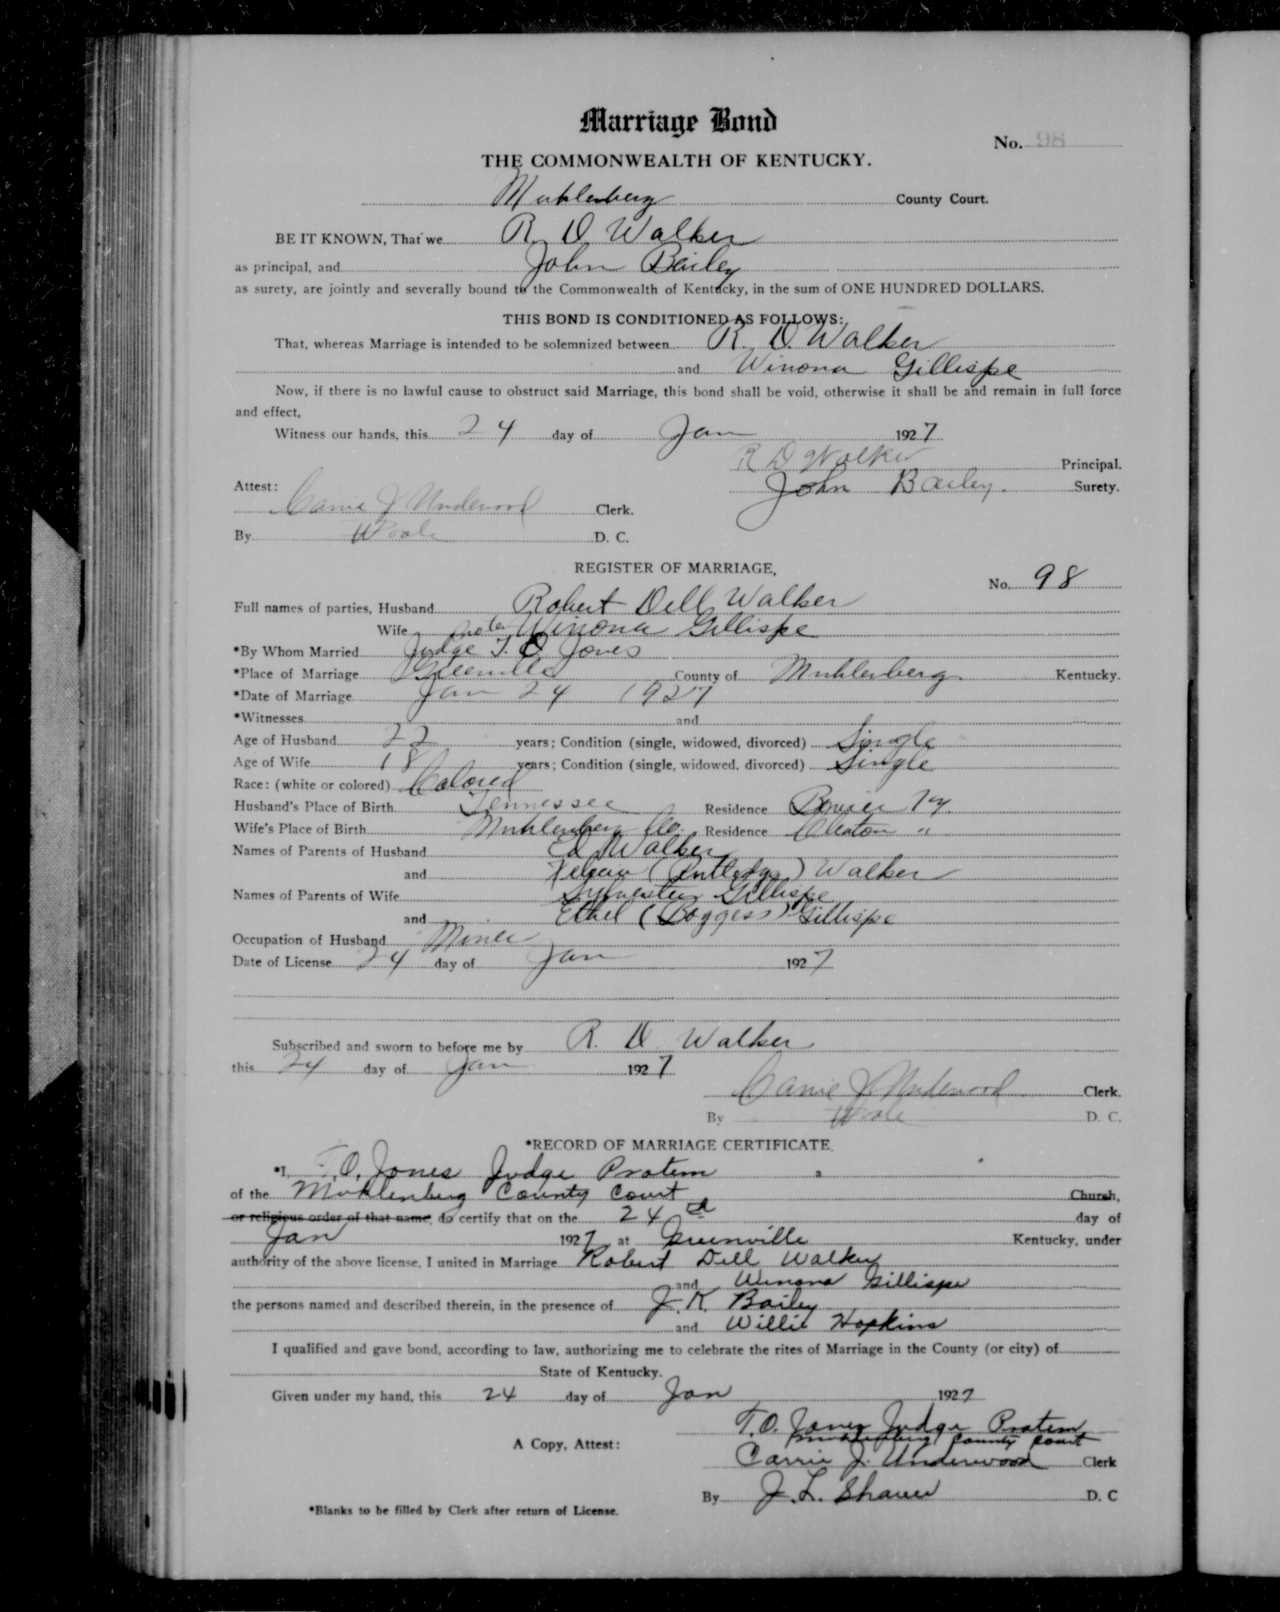 Marriage Bond
No. 98
THE COMMONWEALTH OF KENTUCKY.
Muhlenberg County Court.
BE IT KNOWN, That we R. D. Walker
as principal, and John Bailey
as surety, are jointly and severally bound to the Commonwealth of Kentucky, in the sum of ONE HUNDRED DOLLARS.
THIS BOND IS CONDITIONED AS FOLLOWS:
That, whereas Marriage is intended to be solemnized between R. D. Walker
and Winona Gillispe
Now, if there is no lawful cause to obstruct said Marriage, this bond shall be void, otherwise it shall be and remain in full force
and effect,
Witness our hands, this 24 day of Jan 1927
R D Walker Principal.
Attest: John Bailey. Surety.
Carrie J. Underwood Clerk.
By D. C.
REGISTER OF MARRIAGE,
No. 98
Full names of parties, Husband Robert Dell Walker
Wife Winona Gillispe
*By Whom Married Judge T. O. Jones
*Place of Marriage Greenville County of Muhlenberg Kentucky.
*Date of Marriage Jan 24 1927
*Witnesses and
Age of Husband 22 years; Condition (single, widowed, divorced) Single
Age of Wife 18 years; Condition (single, widowed, divorced) Single
Race: (white or colored) Colored
Husband's Place of Birth Tennessee Residence Ky.
Wife's Place of Birth Muhlenberg Co. Residence Cleaton "
Names of Parents of Husband Ed Walker
and (Rutledge) Walker
Names of Parents of Wife Sylvester Gillispe
and Ethel (Boggess) Gillispe
Occupation of Husband Miner
Date of License 24 day of Jan 1927
Subscribed and sworn to before me by R. D. Walker
this 24 day of Jan 1927
Carrie J. Underwood Clerk.
By D. C.
*RECORD OF MARRIAGE CERTIFICATE.
*I, T. O. Jones Judge Protem
of the Muhlenberg County Court Church,
or religious order of that name, do certify that on the 24th day of
Jan 1927 at Greenville Kentucky, under
authority of the above license, I united in Marriage Robert Dell Walker
and Winona Gillispe
the persons named and described therein, in the presence of J. K. Bailey
and Willie Hopkins
I qualified and gave bond, according to law, authorizing me to celebrate the rites of Marriage in the County (or city) of
State of Kentucky.
Given under my hand, this 24 day of Jan 1927
T. O. Jones Judge Protem
Muhlenberg County Court
A Copy, Attest: Carrie J. Underwood Clerk
By J. L. Shaver D. C
*Blanks to be filled by Clerk after return of License.